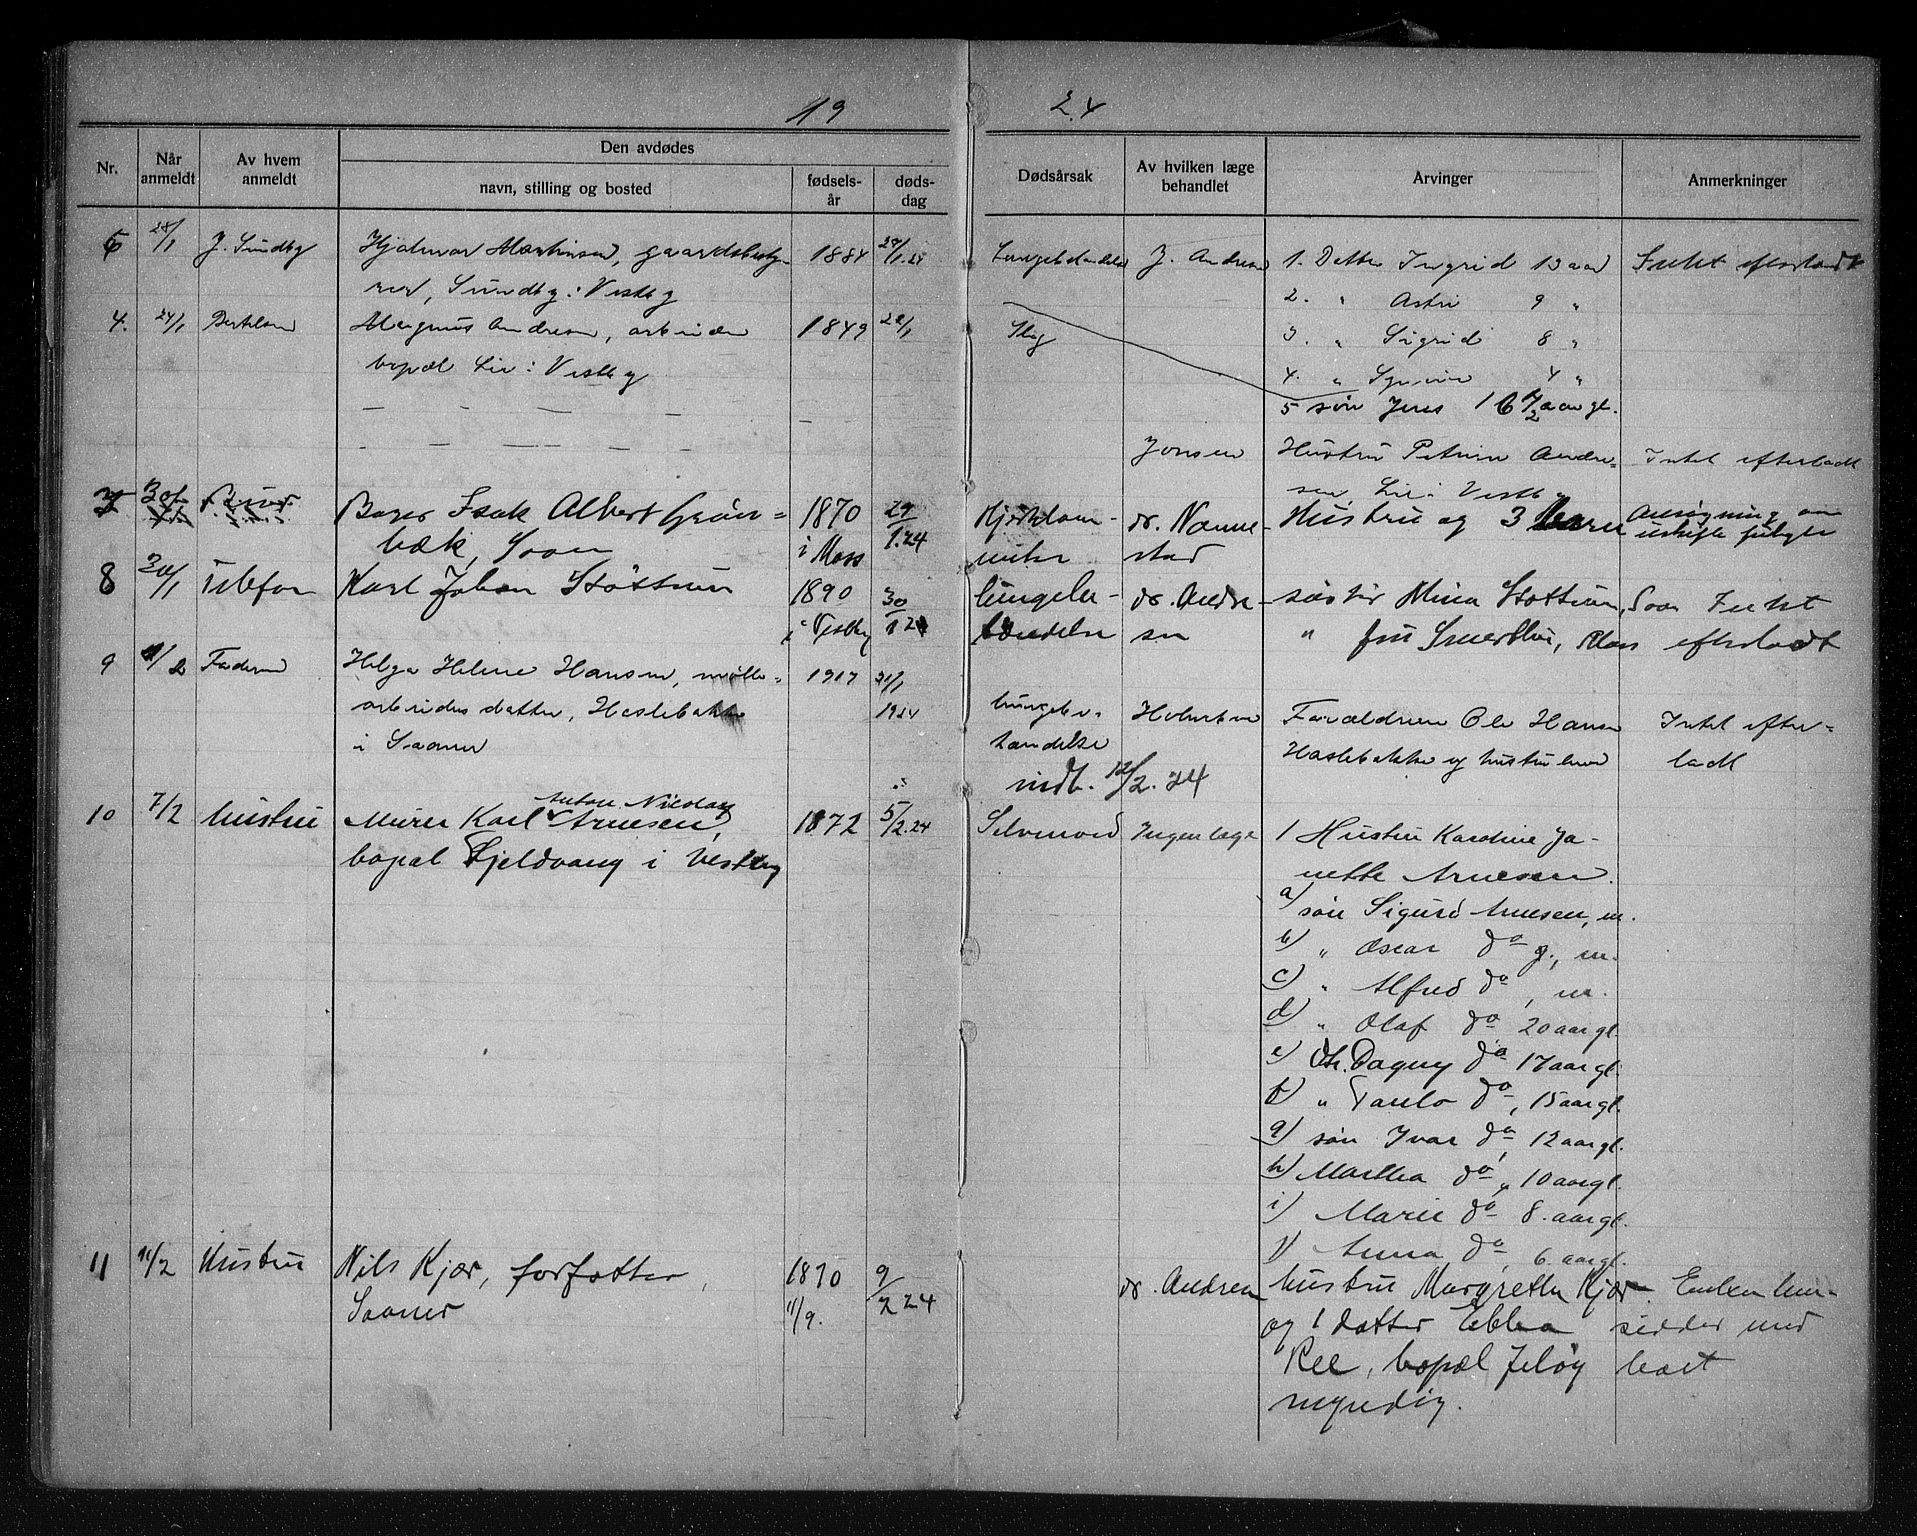 19 24
Nr.
Når anmeldt
Av hvem anmeldt
Den avdødes
navn, stilling og bosted
fødsels-år
døds-dag
Dødsårsak
Av hvilken læge behandlet
Arvinger
Anmerkninger
6 28/1 J. Sundby Hjalmar Martinsen, gaardsbesty- 1884 J. Andresen 1. Datter Ingrid 13 aar Intet efterladt
rer, Sundby i Vestby 2. " Astri 9 "
4. 24/1 Bertelsen Magnus Andresen, arbeider 1849 22/1 Slag 3. " Sigrid 8 "
bopæl Li i Vestby 4. " 4 "
5 søn Jens 16 1/2 aar gl.
Jonsen Hustru Petrine Andre- Intet efterladt
sen, Li i Vestby
7 30/1 Baker Isak Albert Grøn- 1870 29/1.24 Hjertelam- dr. Nannestad Hustru og 3 barn Ansøgning om
bæk, Soon i Moss melse uskifte følger
8 30/1 Telefon Karl Johan Støttum 1890 30/1 24 Lungebe- dr. Andre- søster Mina Støttum, Soon Intet
i Vestby tændelse sen " fru Smerthu, Moss efterladt
9 1/2 Faderen Helga Helene Hansen, mølle- 1917 31/1 1924 Lungebe- Holmboe Forældrene Ole Hansen Intet efter-
arbeiders datter, Haslebakke tændelse Haslebakke og hustru ladt
i Saaner
indb. 12/2. 24
10 7/2 hustru Murer Karl Anton Nicolay Arnesen, 1872 5/2.24 Selvmord Ingen læge 1 Hustru Karoline Ja-
bopæl Kjeldvang i Vestby nette Arnesen.
a) søn Sigurd Arnesen, m.
b) " Oscar do g., m.
c) " Alfred do, m.
d) " Olaf do 20 aar gl.
e) dtr. Dagny do 17 aar gl.
f) " do, 15 aar gl.
g) søn Ivar do, 12 aar gl.
h) Martha do, 10 aar gl.
i) Marie do 8. aar gl.
j) Anna do, 6. aar gl.
11 11/2 Hustru Nils Kjær, forfatter, 1870 9/2 24 dr. Andresen hustru Margrethe Kjær Enken hen-
Saaner 11/9. og 1 datter Ebba sidder med
Ree, bopæl Jeløy boet
myndig.